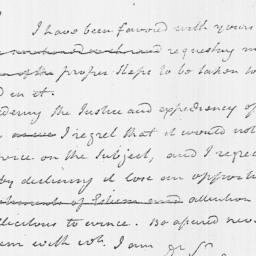 I have been favored with yours
requesting m
proper steps to be taken to
d in it.
dering the Justice and expediency of
I regret that it would not
vice on the subject, and I regret
by declining it lose an opportu
of Esteem and attention
licitous to evince. Be assured nev
em with wh. I am Dr Sr